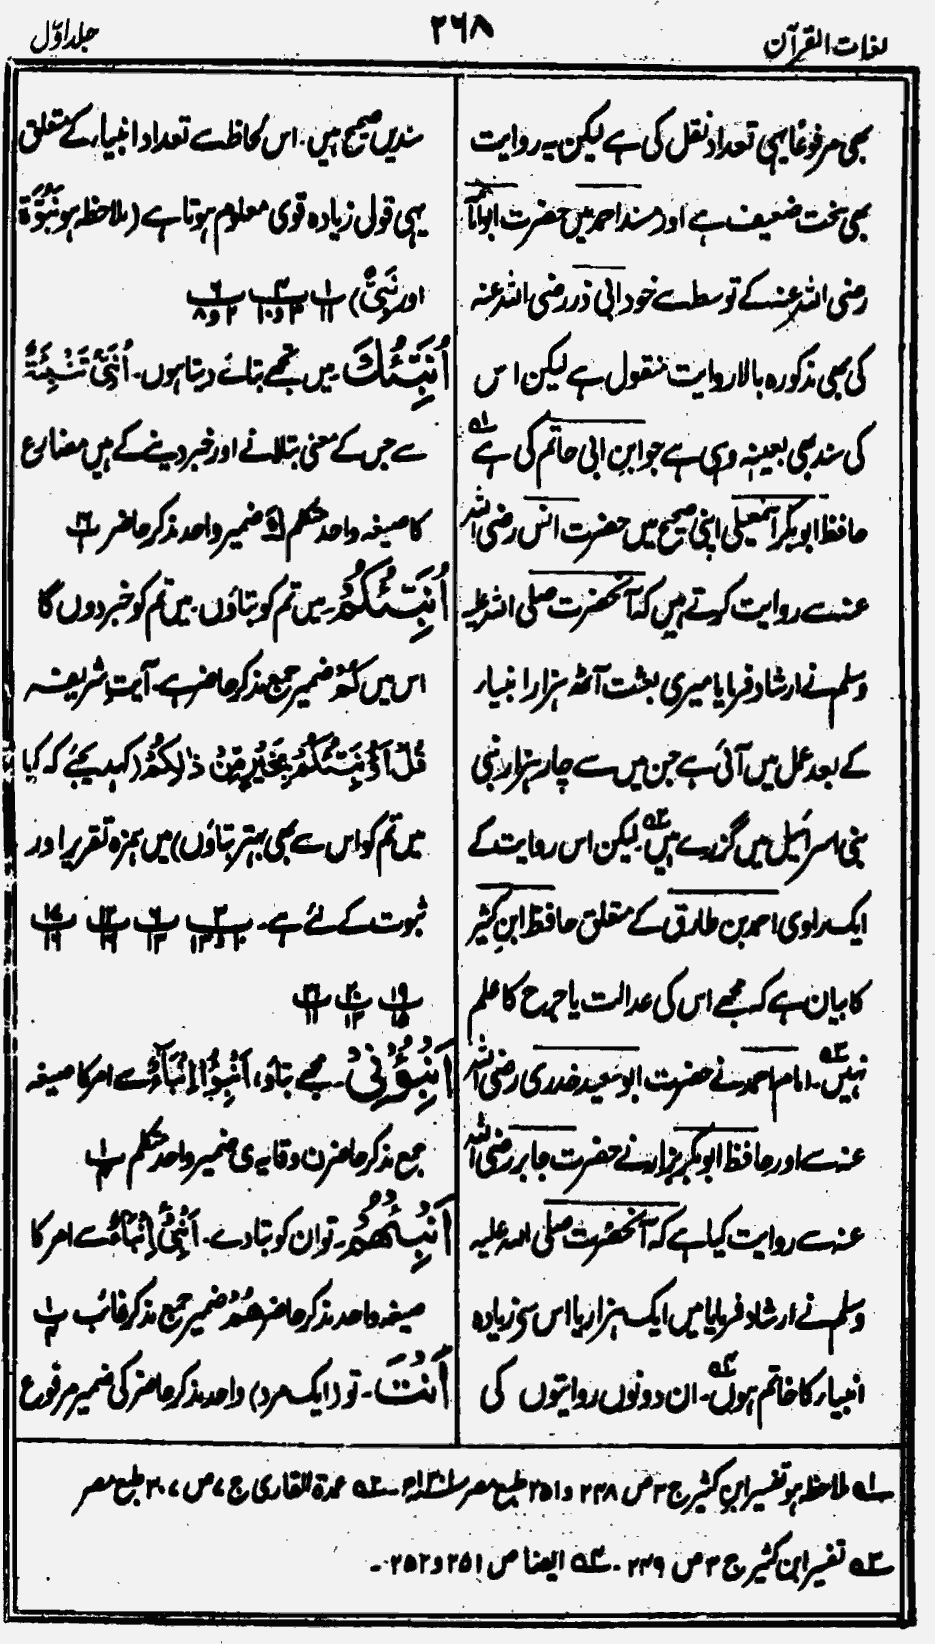 لغات القرآن
۲۶۸
جلد اوّل
بھی مرفوعًا یہی تعداد نقل کی ہے لیکن یہ روایت
بھی سخت ضعیف ہے اور مسند احمد میں حضرت ابو امامہ
رضی اللہ عنہ کے توسط سے خود ابی ذر رضی اللہ عنہ
کی بھی مذکورہ بالا روایت منقول ہے لیکن اس
کی سند بھی بعینہ وہی ہے جو ابن ابی حاتم کی ہے ۱ے
حافظ ابو بکر اسمٰعیلی اپنی صحیح میں حضرت انس رضی اللہ
عنہ سے روایت کرتے ہیں کہ آنحضرت صلی اللہ علیہ
وسلم نے ارشاد فرمایا میری بعثت آٹھ ہزار انبیاء
کے بعد عمل میں آئی ہے جن میں سے چار ہزار نبی
بنی اسرائیل میں گزرے ہیں ۲ے لیکن اس روایت کے
ایک راوی احمد بن طارق کے متعلق حافظ ابن کثیر
کا بیان ہے کہ مجھے اس کی عدالت یا جرح کا علم
نہیں ۳ے۔ امام احمد نے حضرت ابو سعید خدری رضی اللہ
عنہ سے اور حافظ ابو بکر بزار نے حضرت جابر رضی اللہ
عنہ سے روایت کیا ہے کہ آنحضرت صلی اللہ علیہ
وسلم نے ارشاد فرمایا میں ایک ہزار یا اس سی زیادہ
انبیاء کا خاتم ہوں ۴ے۔ ان دونوں روایتوں کی
سندیں صحیح ہیں۔ اس لحاظ سے تعداد انبیاء کے متعلق
یہی قول زیادہ قوی معلوم ہوتا ہے (ملاحظہ ہو نُبُوَّۃ
اور نَبِیّ) ۱/۱۱ ۳/۳و۱۰ ۶/۲و۸
اُنَبِّئُكَ۔ میں تجھے بتائے دیتا ہوں۔ اُنَبِّئُ تَنْبِئَۃٌ
سے جس کے معنی بتلانے اور خبر دینے کے ہیں مضارع
کا صیغہ واحد متکلم ك ضمیر واحد مذکر حاضر
اُنَبِّئُكُمْ۔ میں تم کو بتاؤں۔ میں تم کو خبر دوں گا
اس میں كُمْ ضمیر جمع مذکر حاضر ہے۔ آیتِ شریفہ
قُلْ اَؤُنَبِّئُكُمْ بِخَیْرٍ مِّنْ ذٰلِكُمْ (کہدیجئے کہ کیا
میں تم کو اس سے بھی بہتر بتاؤں) میں ہمزہ تقریر اور
ثبوت کے لئے ہے۔ ۳/۱۰و۱۳ ۶/۱۳ ۱۲/۱۶ ۱۶/۱۹
۱۹/۱۵ ۲۰/۱۲
اَنْبِئُوْنِیْ۔ مجھے بتاؤ، اَنْبِئُوْا اِنْبَاءٌ سے امر کا صیغہ
جمع مذکر حاضر ن وقایہ ی ضمیر واحد متکلم
اَنْبِئْهُمْ۔ تو ان کو بتا دے۔ اَنْبِئْ اِنْبَاءٌ سے امر کا
صیغہ واحد مذکر حاضر هُمْ ضمیر جمع مذکر غائب
اَنْتَ۔ تو (ایک مرد) واحد مذکر حاضر کی ضمیر مرفوع
۱ے ملاحظہ ہو تفسیر ابن کثیر ج ۳ ص ۲۴۸ و ۲۵۱ طبع مصر ۲ے عمدۃ القاری ج ۷ ص ۳۰۷ طبع مصر
۳ے تفسیر ابن کثیر ج ۳ ص ۲۴۹۔ ۴ے ایضا ص ۲۵۱ و ۲۵۲۔